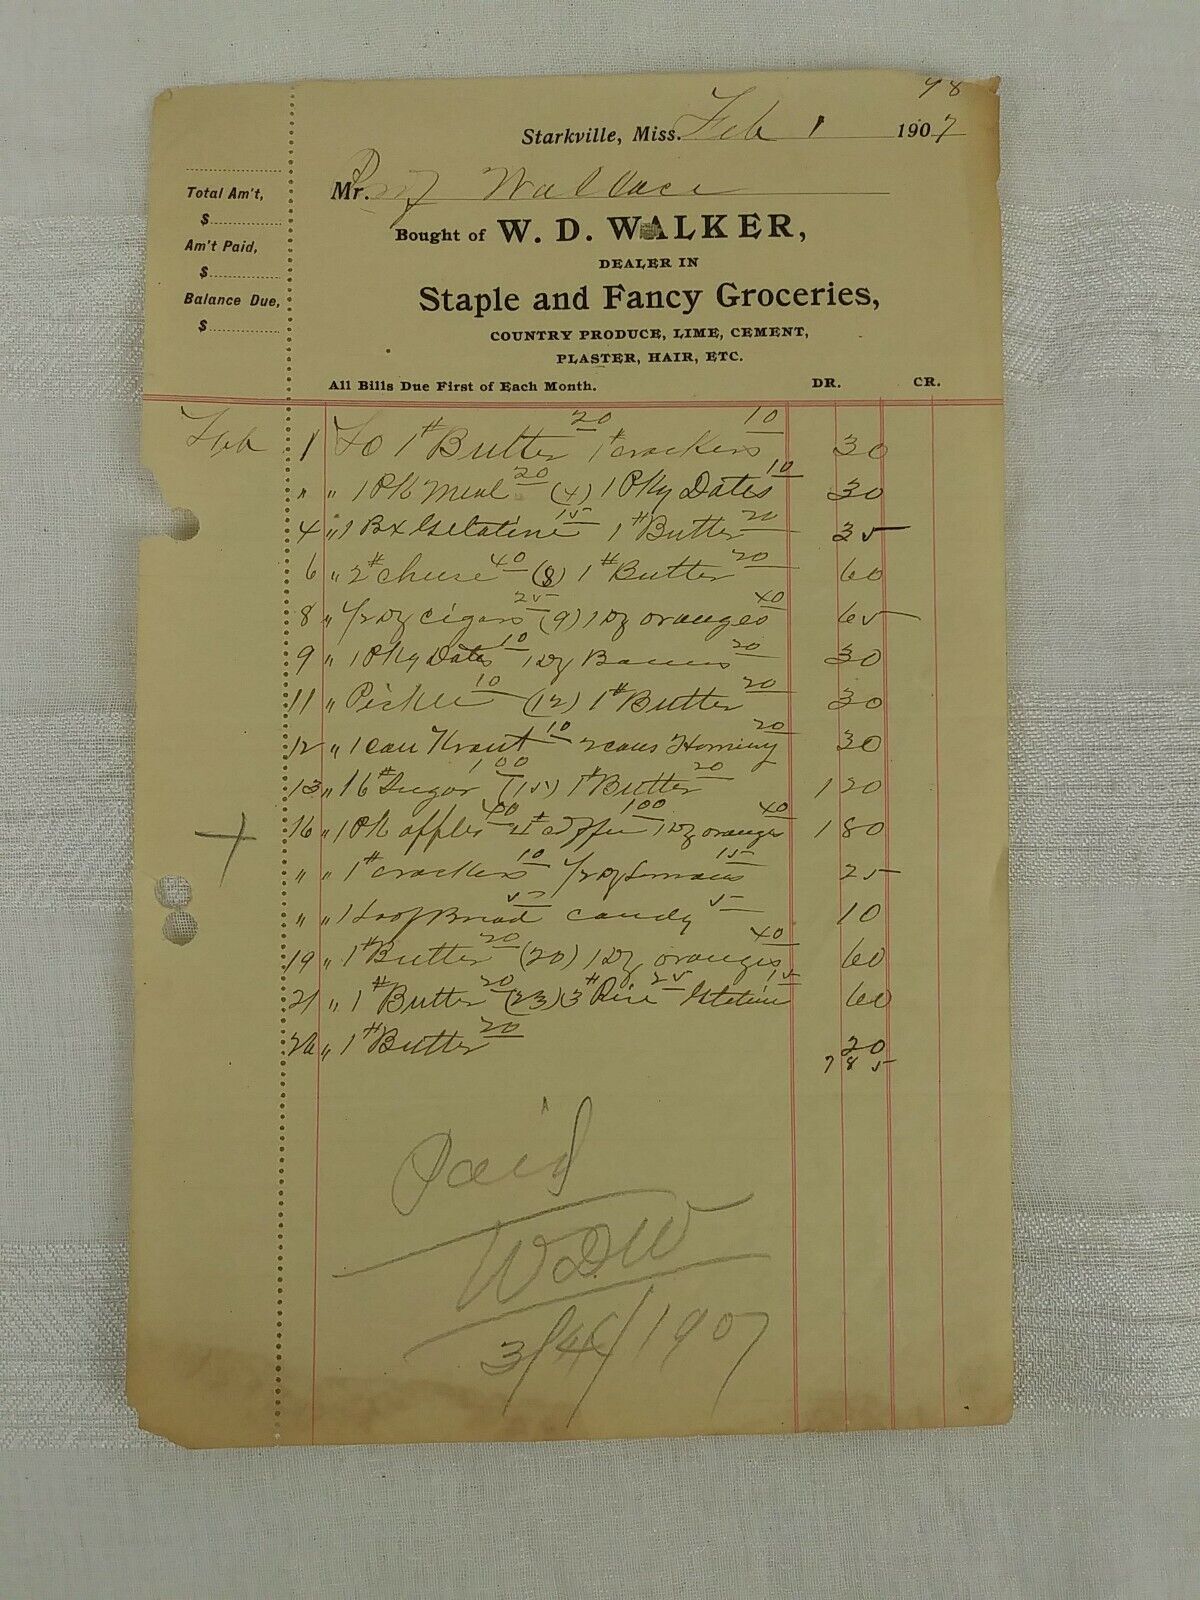 98
Starkville, Miss. Feb 1 1907
Total Am't,
$
Am't Paid,
$
Balance Due,
$
Mr. Prof Wallace
Bought of W. D. WALKER,
DEALER IN
Staple and Fancy Groceries,
COUNTRY PRODUCE, LIME, CEMENT,
PLASTER, HAIR, ETC.
All Bills Due First of Each Month. DR. CR.
Feb 1 To 1# Butter 20 1# crackers 10 30
" " 1 Pk Meal 20 (4) 1 Pkg Dates 10 30
4 " 1 Bx Gelatine 15 1# Butter 20 35
6 " 2# cheese 40 (8) 1# Butter 20 60
8 " 1/2 Dz cigars 25 (9) 1 Dz oranges 40 65
9 " 1 Pkg Dates 10 1 Dz 20 30
11 " Pickle 10 (12) 1# Butter 20 30
12 " 1 can Kraut 10 2 cans Hominy 20 30
13 " 16# Sugar 100 (15) 1# Butter 20 120
16 " 1 Pk apples 40 4# coffee 100 1 Dz oranges 40 180
" " 1# crackers 10 1/2 Dz Lemons 15 25
" " 1 Loaf Bread 5 candy 5 10
19 " 1# Butter 20 (20) 1 Dz oranges 40 60
21 " 1# Butter 20 (23) 3# Rice 25 Gelatine 15 60
26 " 1# Butter 20 20
785
Paid
WDW
3/4/1907